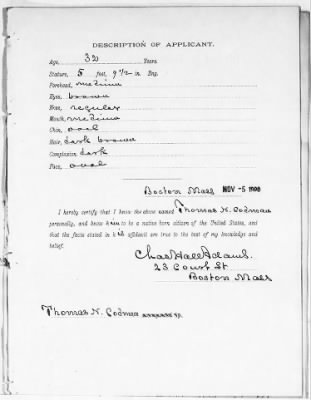 DESCRIPTION OF APPLICANT.
Age, 32 Years.
Stature, 5 feet, 9 1/2 in Eng.
Forehead, medium
Eyes, brown
Nose, regular
Mouth, medium
Chin, oval
Hair, dark brown
Complexion, dark
Face, oval
Boston Mass NOV -5 1900
I hereby certify that I know the above named Thomas N. Codman
personally, and know him to be a native born citizen of the United States, and
that the facts stated in his affidavit are true to the best of my knowledge and
belief.
Chas Hall Adams.
23 Court St
Boston Mass
Thomas N. Codman